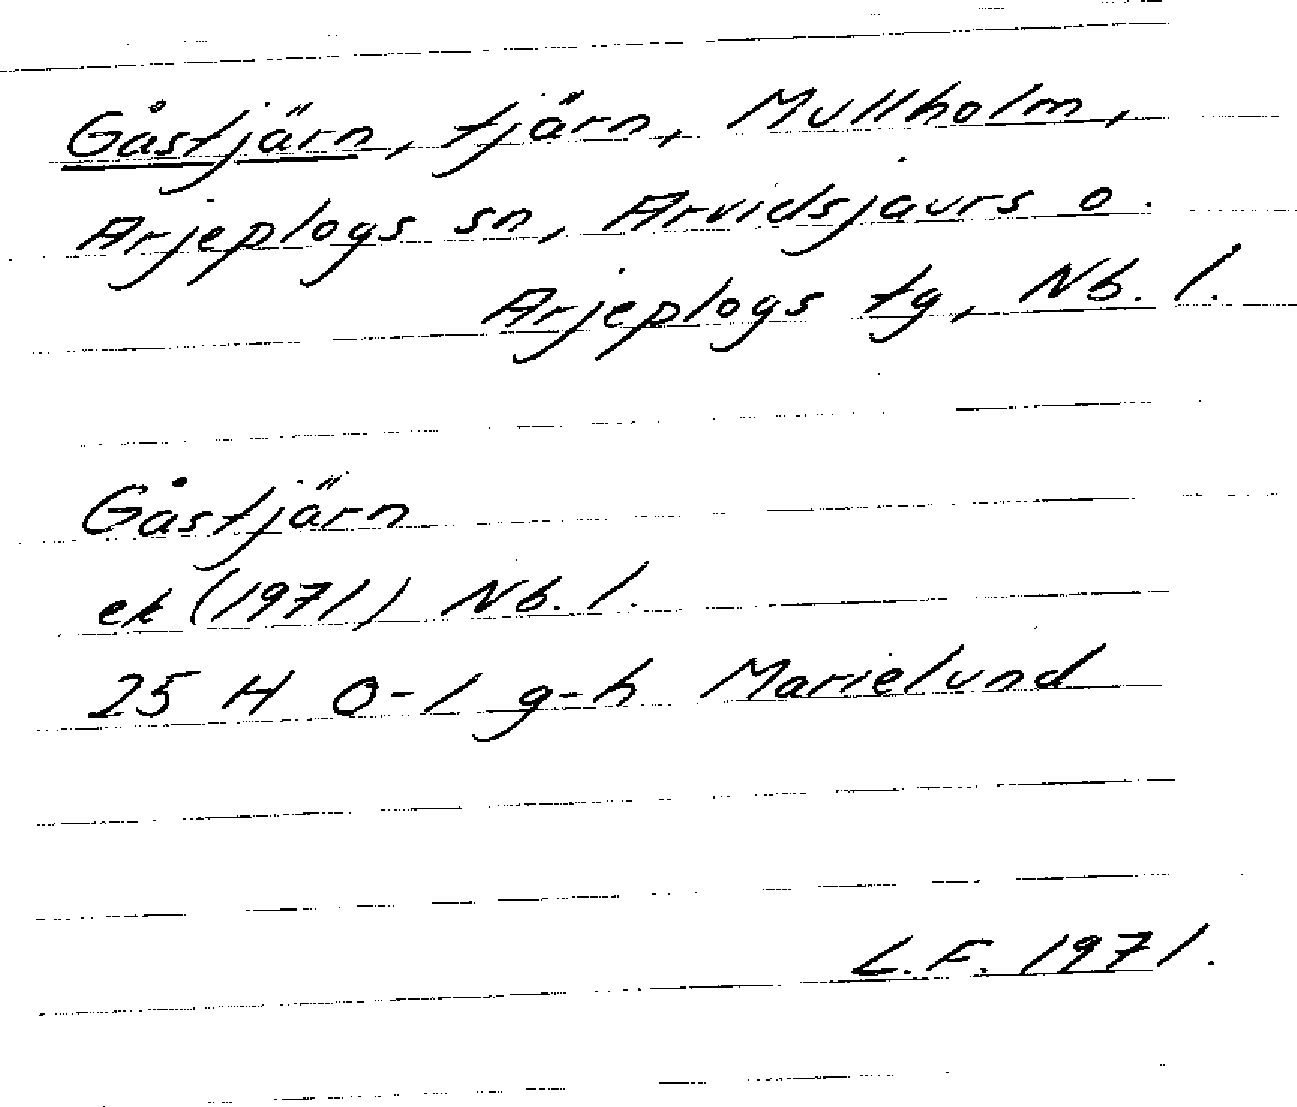 Gåstjärn, tjärn, Mullholm,
Arjeplogs sn, Arvidsjaurs o.
Arjeplogs tg, Nb. l.
Gåstjärn
ek (1971) Nb. l.
25 H 0-1 g-h Marielund
L.F. 1971.